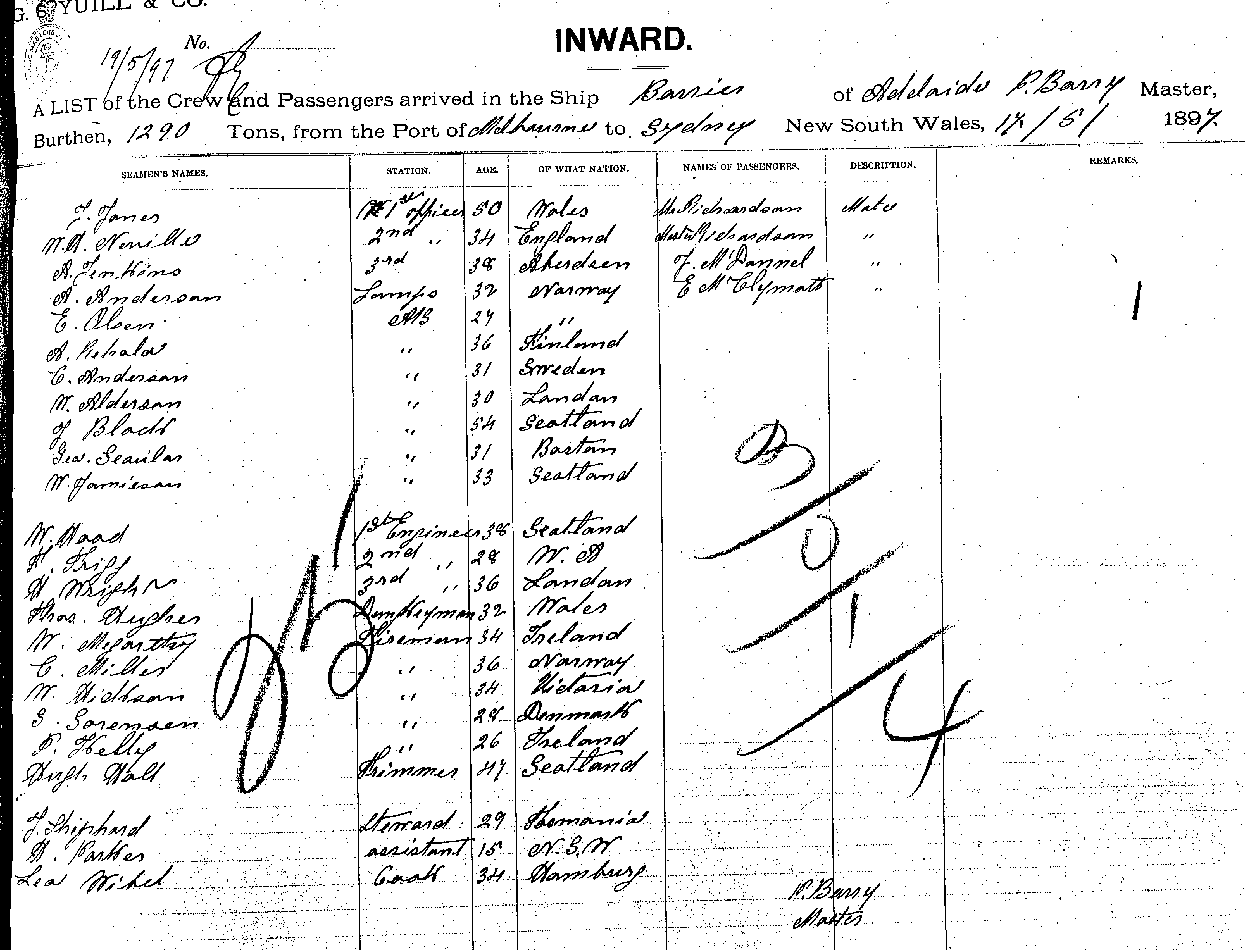 G. S. YUILL & CO.
INWARD.
No.
19/5/97
A LIST of the Crew and Passengers arrived in the Ship Barrier of Adelaide P. Barry Master,
Burthen, 1290 Tons, from the Port of Melbourne to Sydney New South Wales, 17/5/ 1897.
SEAMEN'S NAMES. STATION. AGE. OF WHAT NATION. NAMES OF PASSENGERS. DESCRIPTION. REMARKS.
J. Jones 1st officer 50 Wales Mr Richardson Mate
W.H. Neville 2nd " 34 England Richardson "
A. Jenkins 3rd 38 Aberdeen J. McDonnel "
A. Anderson Lamps 32 Norway E McClymoth "
E. Olsen AB 27 "
A. " 36 Finland
C. Anderson " 31 Sweden
W. Alderson " 30 London
J Black " 54 Scotland
Geo. " 31 Boston
W. Jamieson " 33 Scotland
W. Hood 1st Engineer 38 Scotland
2nd " 28 W. A
H Wright 3rd " 36 London
Thos. Hughes Donkeyman 32 Wales
W. McCarthy Fireman 34 Ireland
C. Miller " 36 Norway
W. Hickson " 34 Victoria
S. Sorensen " 28 Denmark
P. Kelly " 26 Ireland
Hugh Holt Trimmer 47 Scotland
J. Shiphard Steward 29 Tasmania
H. Parker assistant 15 N.S.W.
Leo Wibel Cook 34 Hamburg
25
3/0/1/4
P. Barry
Master